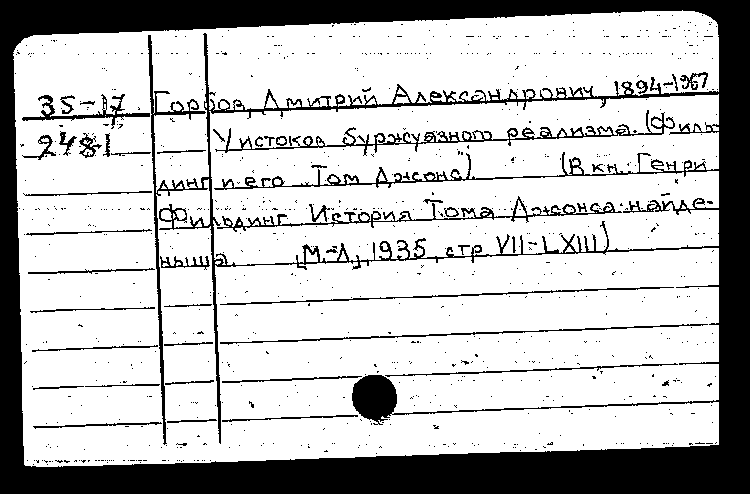 35-17 Горбов, Дмитрий Александрович, 1894-1967
2481 У истоков буржуазного реализма. (Филь-
динг и его "Том Джонс") (В кн.: Генри
Фильдинг. История Тома Джонса найде-
ныша. [М.-Л.], 1935, стр. VII-LXIII).